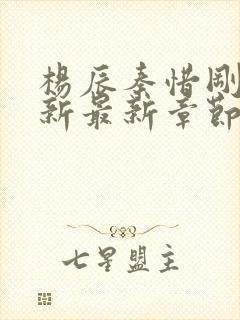 楊辰秦惜剛
新最新章節
七星盟主